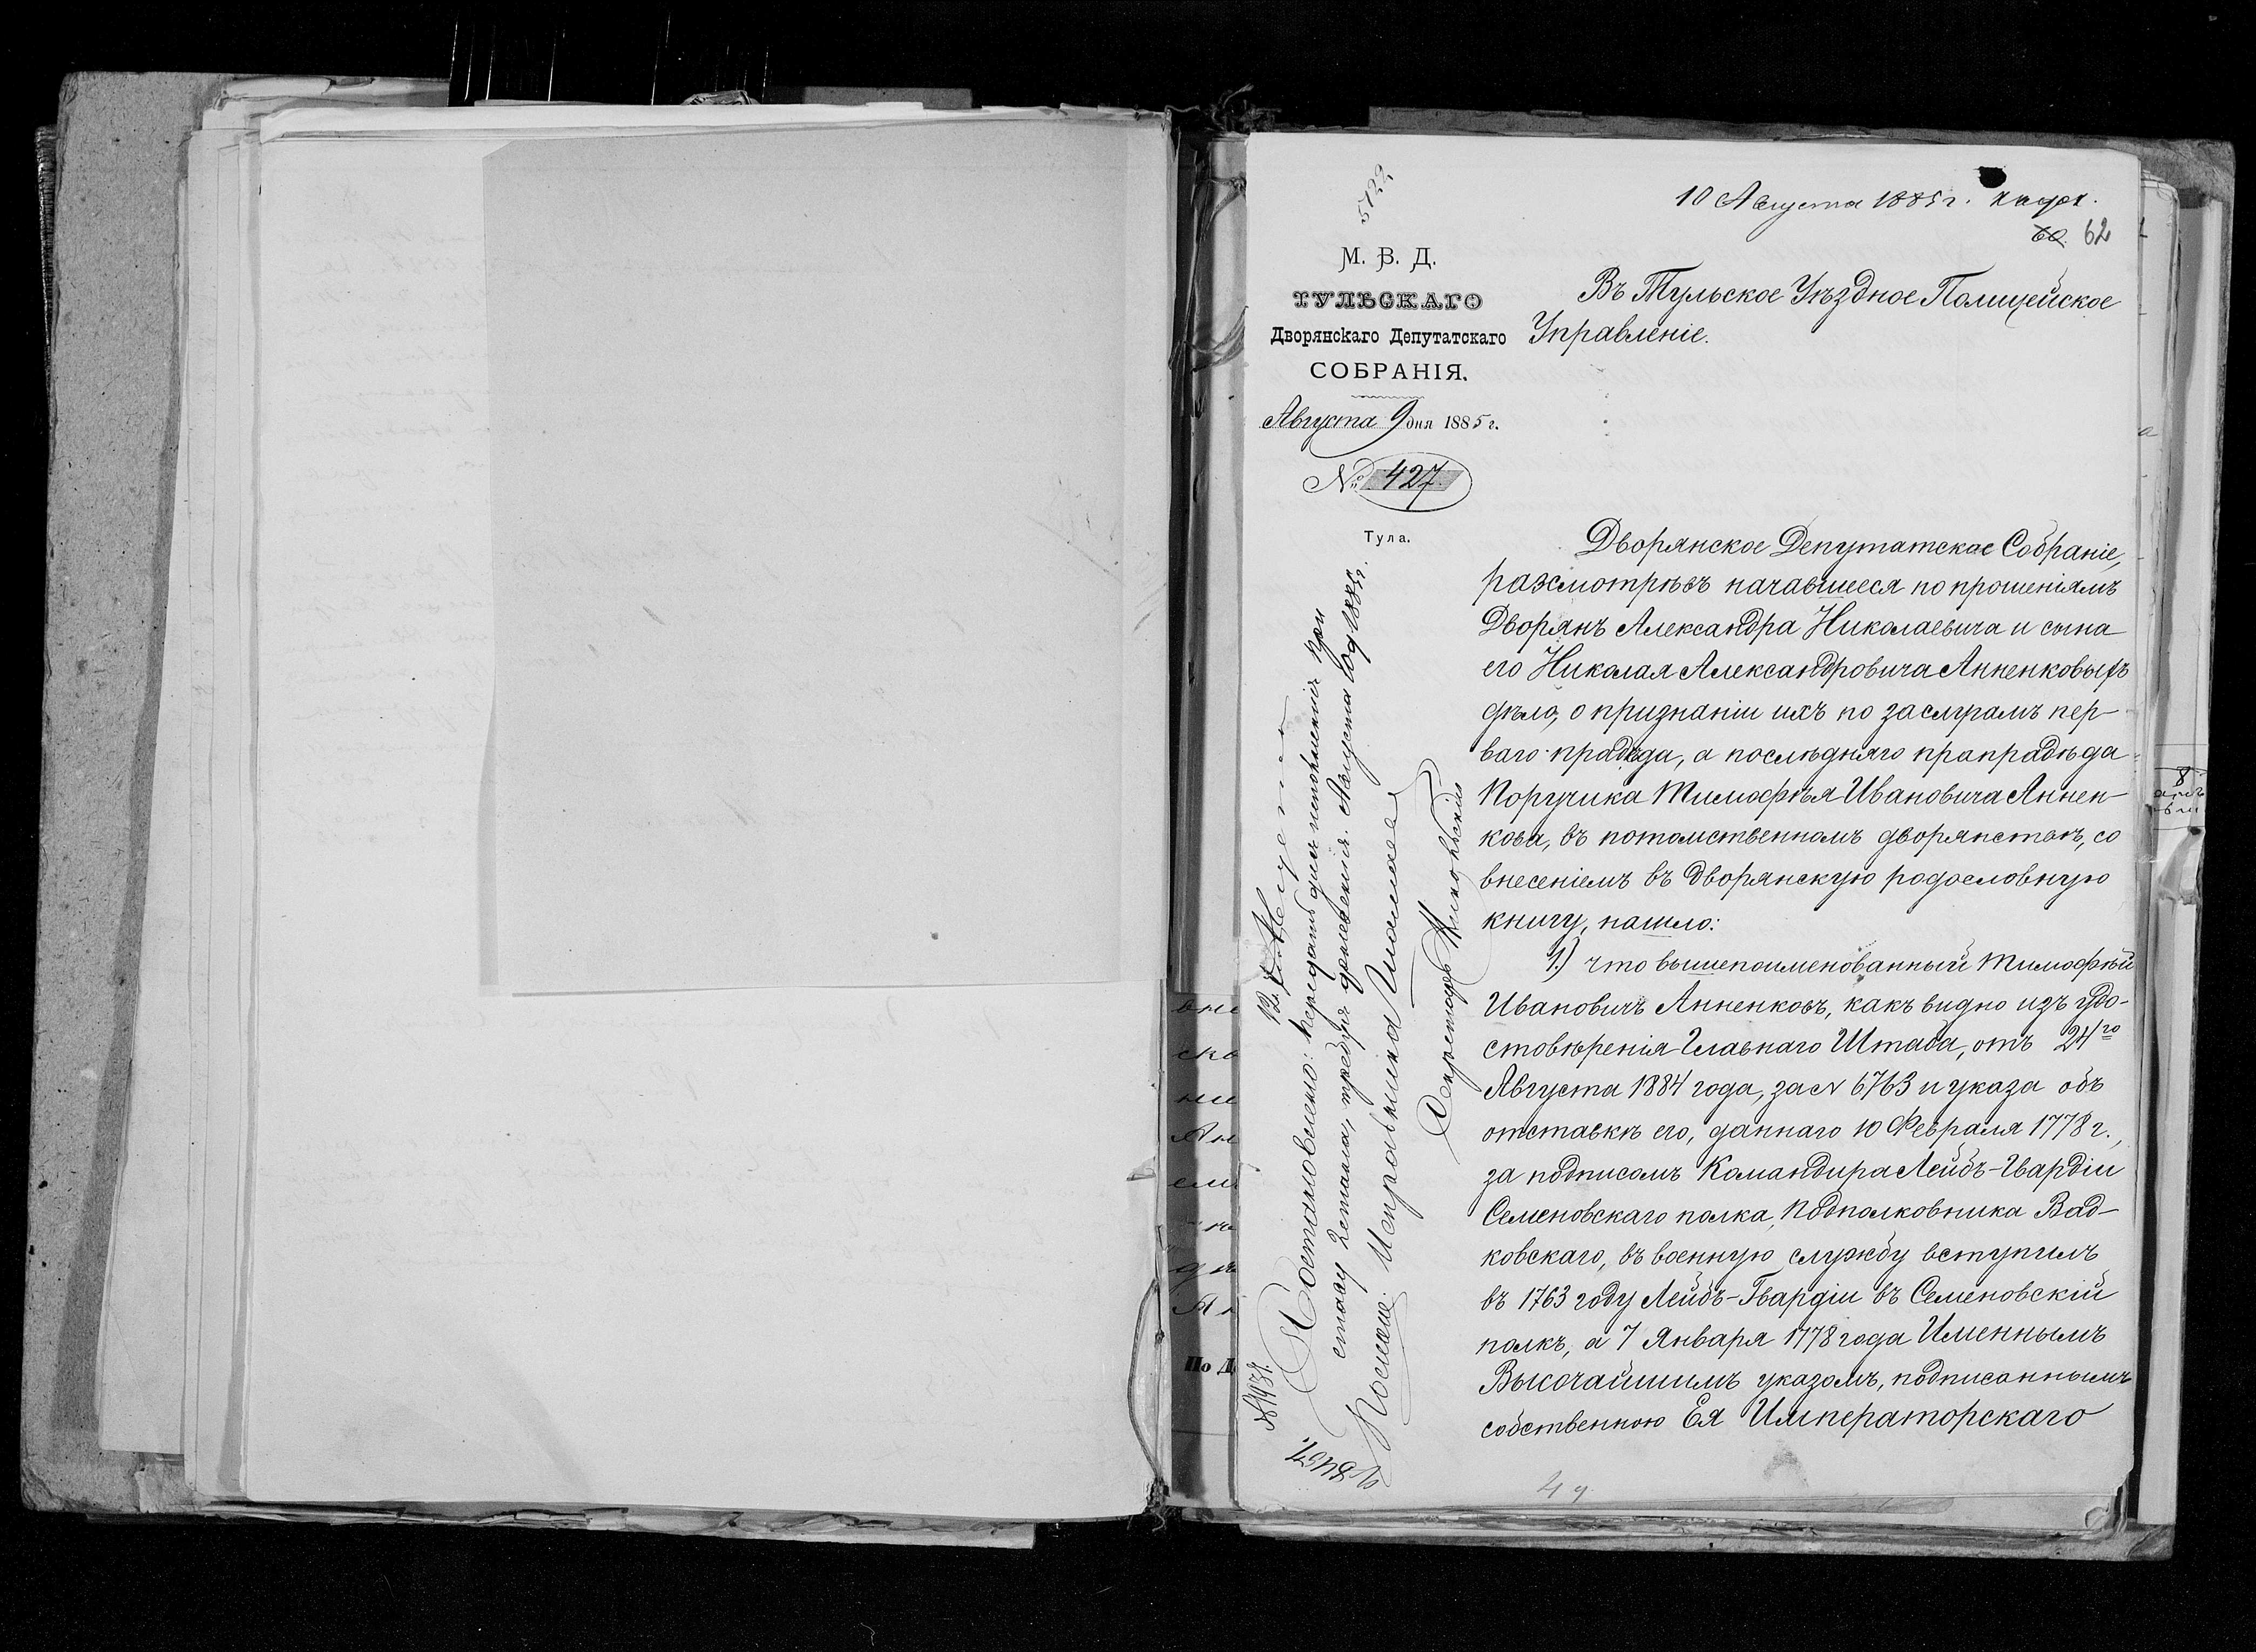 5122
10 Августа 1885 г.
60. 62
М. В. Д.
ТУЛЬСКАГО
Дворянскаго Депутатскаго
СОБРАНІЯ.
Августа 9 дня 1885 г.
№ 427.
Тула.
Въ Тульское Уѣздное Полицейское
Управленіе.
Дворянское Депутатское Собраніе,
разсмотрѣвъ начавшееся по прошеніямъ
Дворянъ Александра Николаевича и сына
его Николая Александровича Анненковыхъ
дѣло, о признаніи ихъ по заслугамъ пер-
ваго прадѣда, а послѣдняго прапрадѣда
Поручика Тимофѣя Ивановича Аннен-
кова, въ потомственномъ дворянствѣ, со
внесеніемъ въ дворянскую родословную
книгу, нашло:
1.) что вышепоименованный Тимофѣй
Ивановичъ Анненковъ, какъ видно изъ удо-
стовѣренія Главнаго Штаба, отъ 24го
Августа 1884 года, за N 6763 и указа объ
отставкѣ его, даннаго 10 Февраля 1778 г.,
за подписомъ Командира Лейбъ-Гвардіи
Семеновскаго полка, Подполковника Вад-
ковскаго, въ военную службу вступилъ
въ 1763 году Лейбъ-Гвардіи въ Семеновскій
полкъ, а 7 Января 1778 года Именнымъ
Высочайшимъ указомъ, подписаннымъ
собственною Ея Императорскаго
Постановлено: передать для исполненія при
стасу 2 стана, требуя донесенія. Августа 10 д 1885 г.
Исправника
Секретарь
вне
ско
ни
Ан
По Д
49